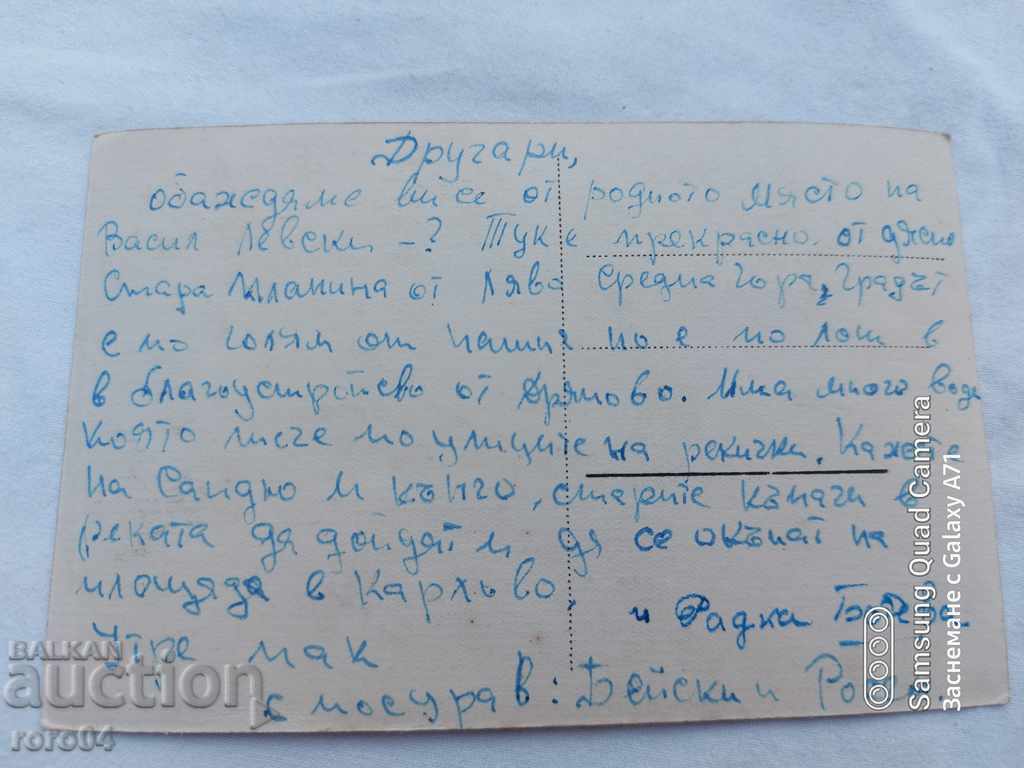 Другари,
обаждаме ви се от родното място на
Васил Левски -? Тук е прекрасно. от дясно
Стара Планина от ляво Средна гора, Градът
е по голям от нашия но е по лош в
в благоустройство от Дряново. Има много вода
която тече по улиците на рекички. Кажете
на Сандю и Кънчо, старите къпачи в
реката да дойдат и да се окъпат на
площада в Карлово.
и Радка
Утре пак
с поздрав: Бейски и
BALKAN
auction
roro04
Samsung Quad Camera
Заснемане с Galaxy A71